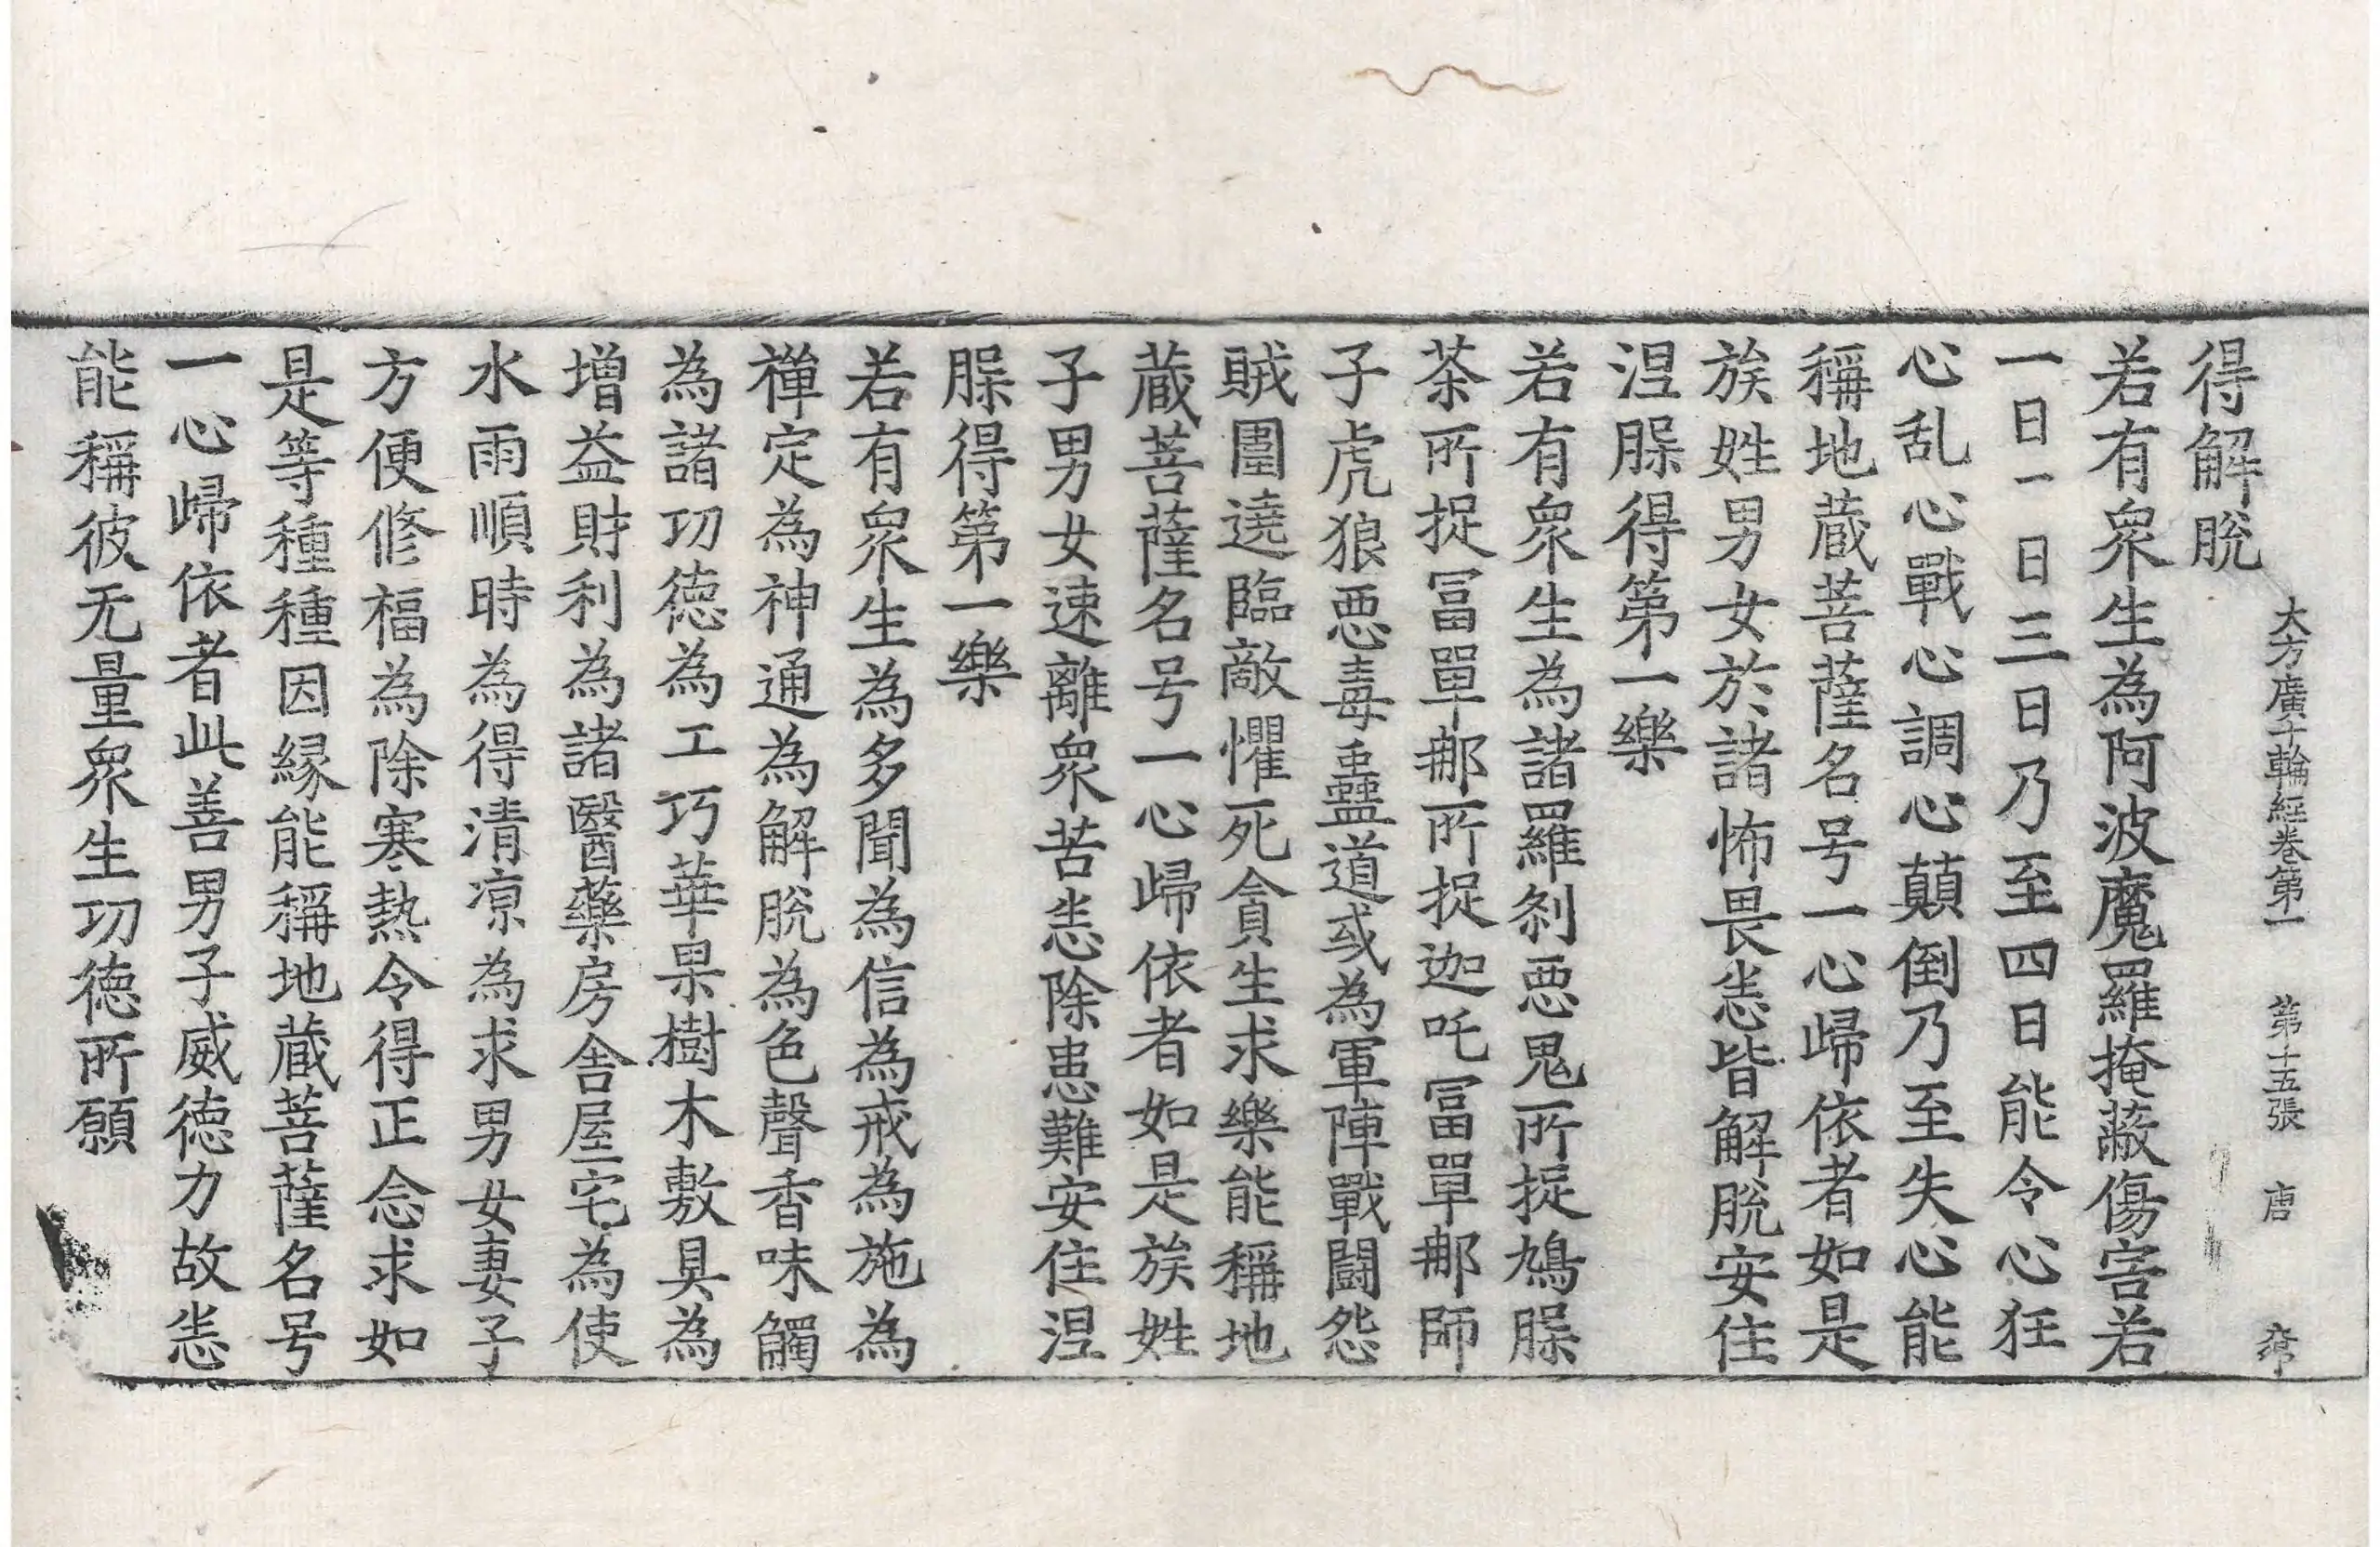 大方廣十輪經卷第一 第十五張 唐
得解脫
若有衆生為阿波魔羅掩蔽傷害若
一日一日三日乃至四日能令心狂
心乱心戰心調心顛倒乃至失心能
稱地蔵菩薩名号一心歸依者如是
族姓男女於諸怖畏悉皆解脫安住
涅槃得第一樂
若有衆生為諸羅剎惡鬼所捉鳩槃
茶所捉冨單那所捉迦吒冨單那師
子虎狼惡毒蠱道或為軍陣戰鬪怨
賊圍遶臨敵懼死貪生求樂能稱地
蔵菩薩名号一心歸依者如是族姓
子男女速離衆苦悉除患難安住涅
槃得第一樂
若有衆生為多聞為信為戒為施為
禪定為神通為解脫為色聲香味觸
為諸功德為工巧華果樹木敷具為
增益財利為諸醫藥房舍屋宅為使
水雨順時為得清凉為求男女妻子
方便修福為除寒熱令得正念求如
是等種種因緣能稱地蔵菩薩名号
一心歸依者此善男子威德力故悉
能稱彼无量衆生功德所願